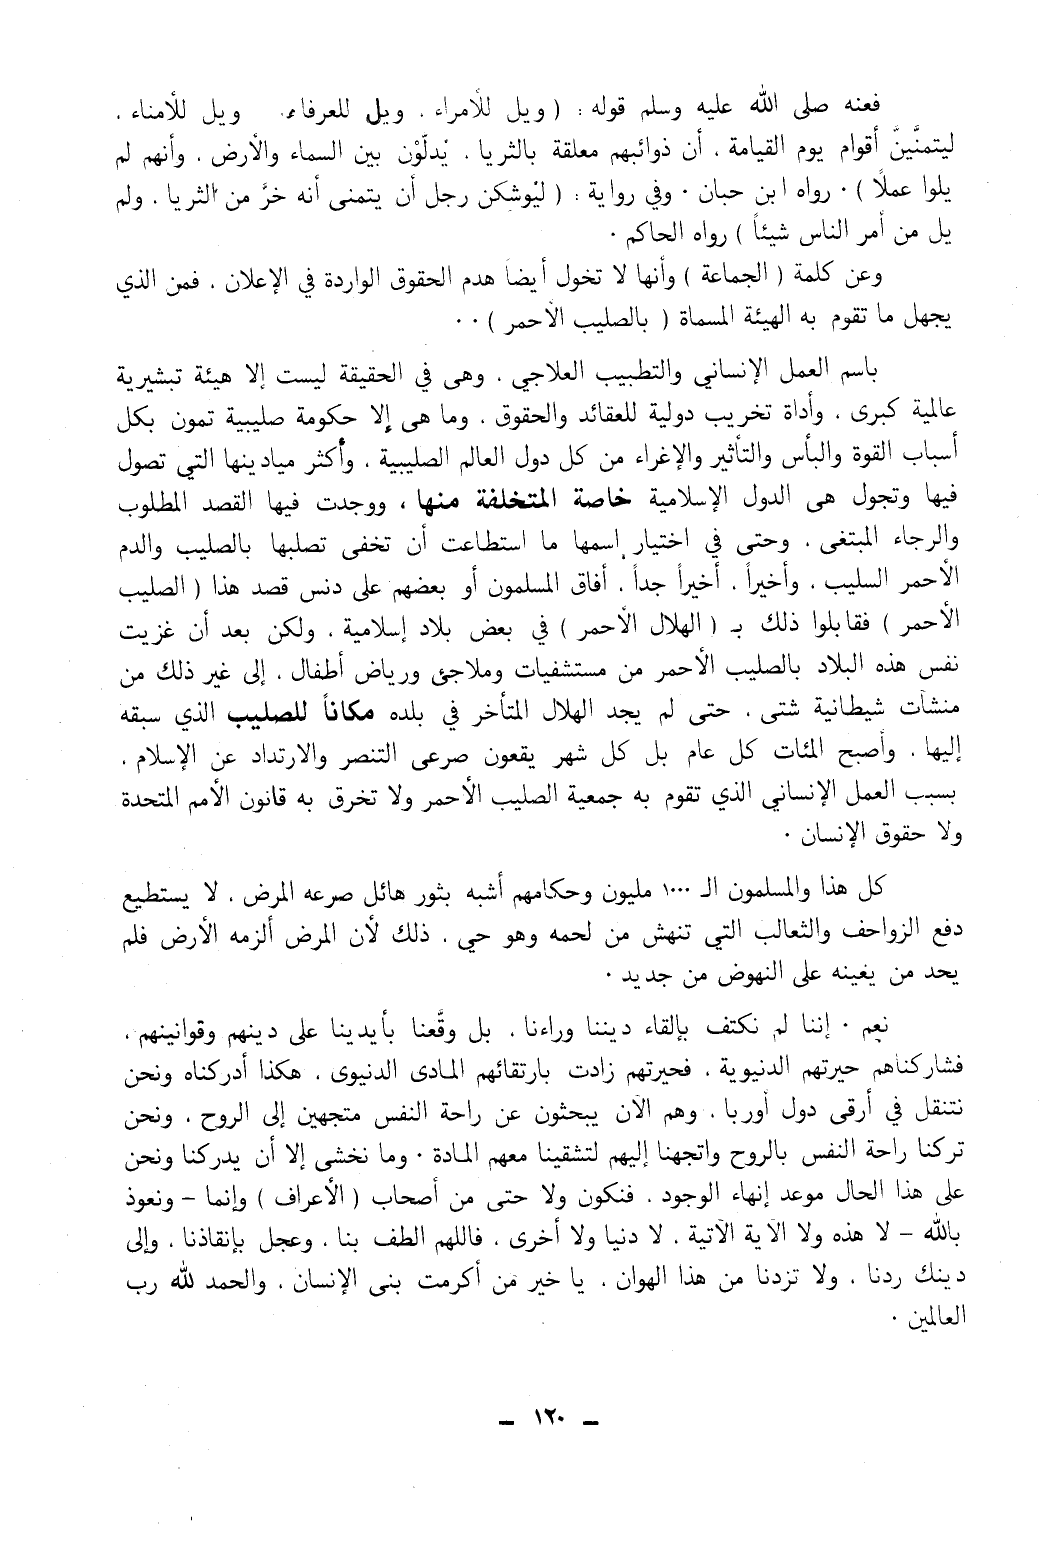 فعنه صلى الله عليه وسلم قوله : ( ويل للأمراء . ويل للعرفاء. ويل للأمناء .
ليتمنَّينَّ أقوام يوم القيامة . أن ذوائبهم معلقة بالثريا . يُدلّوْن بين السماء والأرض . وأنهم لم
يلوا عملًا ) . رواه ابن حبان . وفي رواية : ( ليُوشكن رجل أن يتمنى أنه خرَّ من الثريا . ولم
يل من أمر الناس شيئاً ) رواه الحاكم .
وعن كلمة ( الجماعة ) وأنها لا تخول أيضاً هدم الحقوق الواردة في الإعلان . فمن الذي
يجهل ما تقوم به الهيئة المسماة ( بالصليب الأحمر ) . .
باسم العمل الإنساني والتطبيب العلاجي . وهى في الحقيقة ليست إلا هيئة تبشيرية
عالمية كبرى . وأداة تخريب دولية للعقائد والحقوق . وما هى إلا حكومة صليبية تمون بكل
أسباب القوة والبأس والتأثير والإغراء من كل دول العالم الصليبية . وأكثر ميادينها التي تصول
فيها وتجول هى الدول الإسلامية خاصة المتخلفة منها ، ووجدت فيها القصد المطلوب
والرجاء المبتغى . وحتى في اختيار إسمها ما استطاعت أن تخفى تصلبها بالصليب والدم
الأحمر السليب . وأخيراً . أخيراً جداً . أفاق المسلمون أو بعضهم على دنس قصد هذا ( الصليب
الأحمر ) فقابلوا ذلك بـ ( الهلال الأحمر ) في بعض بلاد إسلامية . ولكن بعد أن غزيت
نفس هذه البلاد بالصليب الأحمر من مستشفيات وملاجئ ورياض أطفال . إلى غير ذلك من
منشآت شيطانية شتى . حتى لم يجد الهلال المتأخر في بلده مكاناً للصليب الذي سبقه
إليها . وأصبح المئات كل عام بل كل شهر يقعون صرعى التنصر والارتداد عن الإسلام .
بسبب العمل الإنساني الذي تقوم به جمعية الصليب الأحمر ولا تخرق به قانون الأمم المتحدة
ولا حقوق الإنسان .
كل هذا والمسلمون الـ ١٠٠٠ مليون وحكامهم أشبه بثور هائل صرعه المرض . لا يستطيع
دفع الزواحف والثعالب التي تنهش من لحمه وهو حي . ذلك لأن المرض ألزمه الأرض فلم
يجد من يغينه على النهوض من جديد .
نعم . إننا لم نكتف بإلقاء ديننا وراءنا . بل وقَّعنا بأيدينا على دينهم وقوانينهم .
فشاركناهم حيرتهم الدنيوية . فحيرتهم زادت بارتقائهم المادى الدنيوى . هكذا أدركناه ونحن
نتنقل في أرقى دول أوربا . وهم الآن يبحثون عن راحة النفس متجهين إلى الروح . ونحن
تركنا راحة النفس بالروح واتجهنا إليهم لتشقينا معهم المادة . وما نخشى إلا أن يدركنا ونحن
على هذا الحال موعد إنهاء الوجود . فنكون ولا حتى من أصحاب ( الأعراف ) وإنما - ونعوذ
بالله - لا هذه ولا الآية الآتية . لا دنيا ولا أخرى . فاللهم الطف بنا . وعجل بإنقاذنا . وإلى
دينك ردنا . ولا تزدنا من هذا الهوان . يا خير من أكرمت بنى الإنسان . والحمد لله رب
العالمين .
ـ ١٢٠ ـ